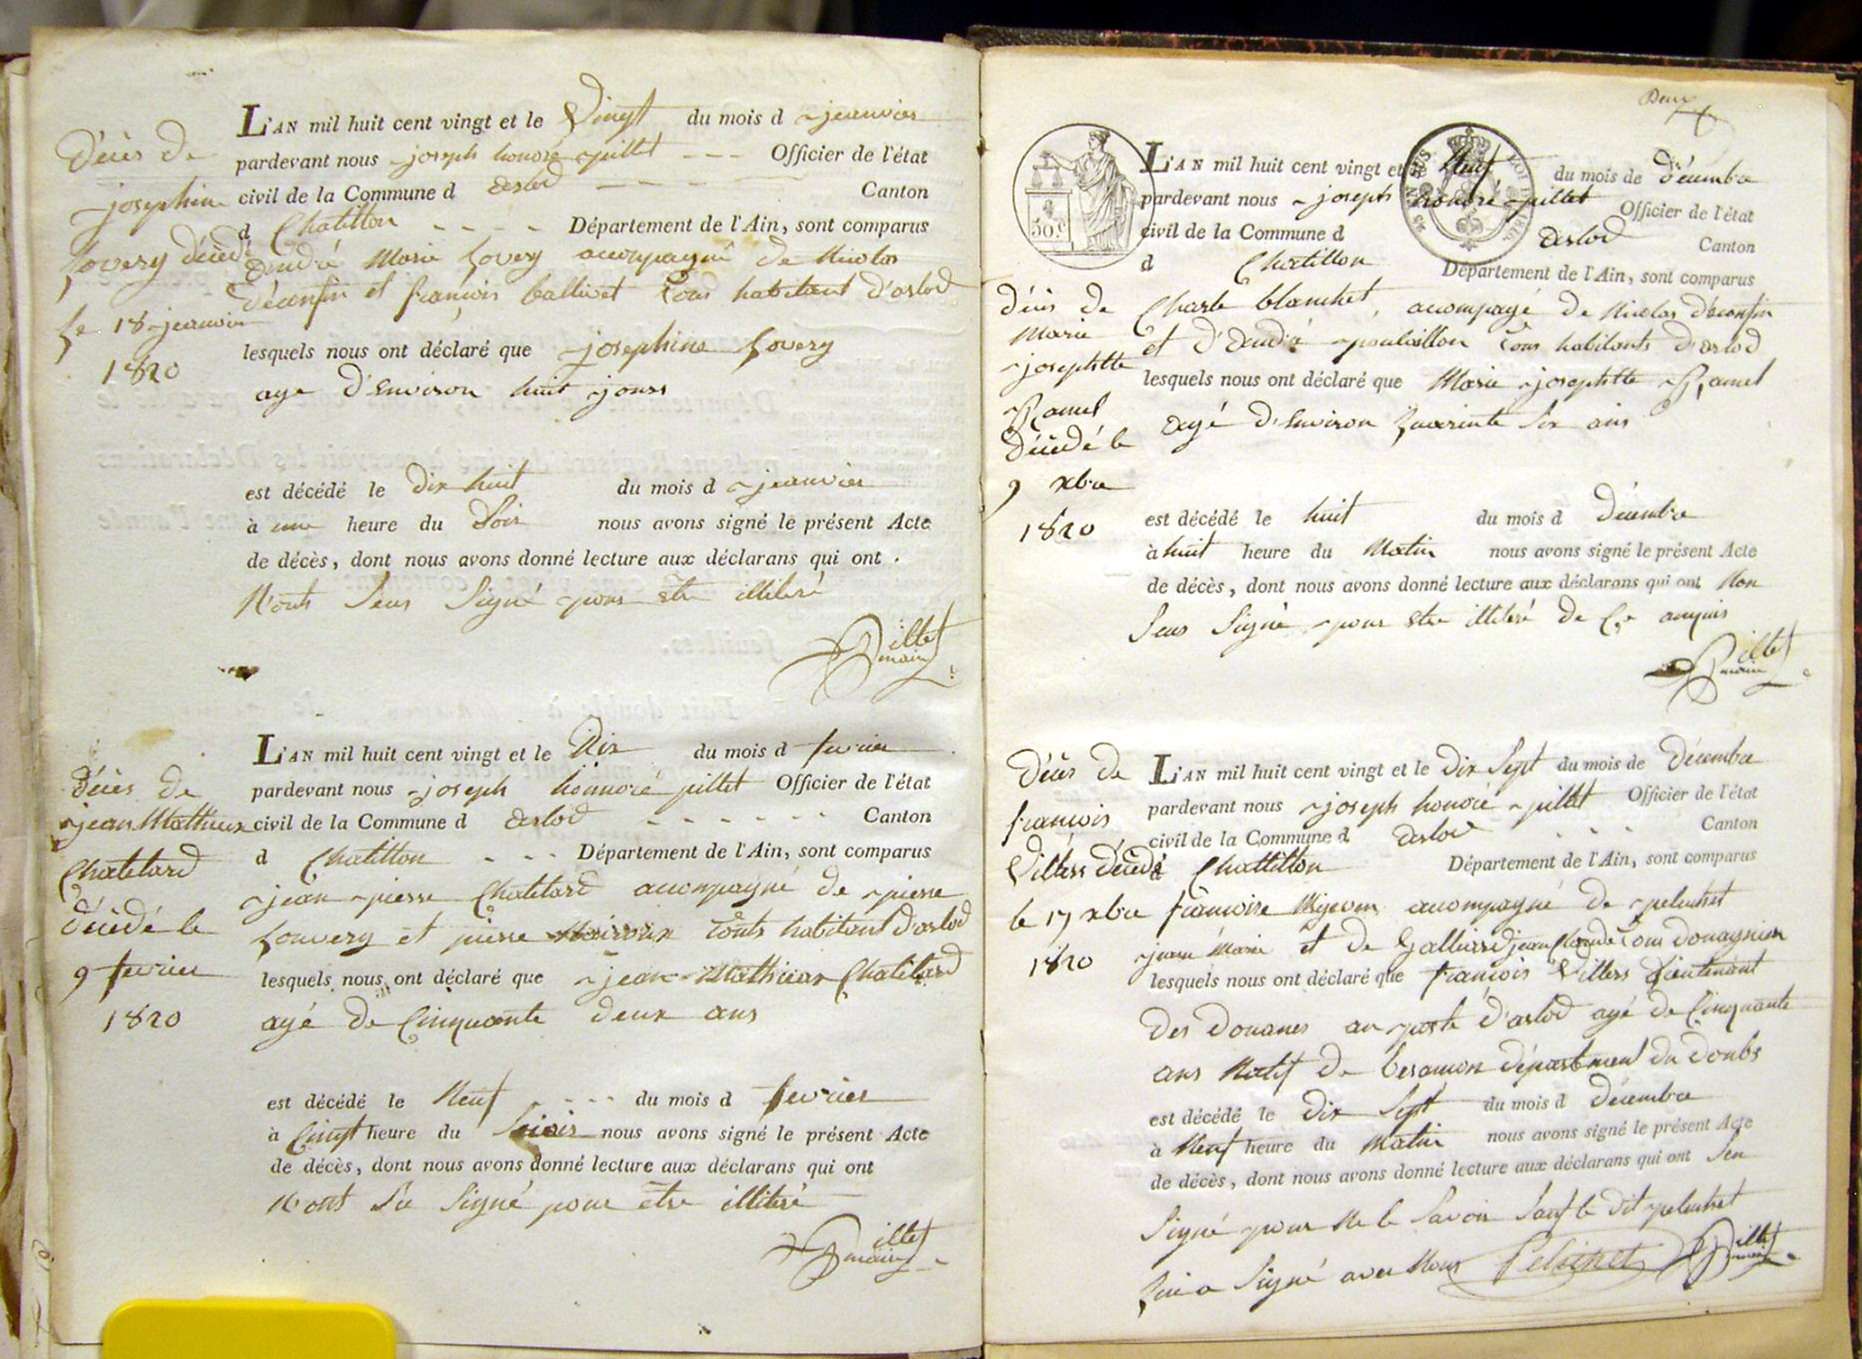 Décès de
josephine
fovery décédé
le 18 jeanvier
1820
L'AN mil huit cent vingt et le Vingt du mois d jeanvier
pardevant nous joseph honoré pillet Officier de l'état
civil de la Commune d arlod Canton
d Chatillon Département de l'Ain, sont comparus
Marie fovery accompagné de Nicolas
et françois ballivet tous habitant d'arlod
lesquels nous ont déclaré que josephine fovery
age d'environ huit jours
est décédé le dix huit du mois d jeanvier
à une heure du Soir nous avons signé le présent Acte
de décès, dont nous avons donné lecture aux déclarans qui ont.
N'onts Seus Signé pour etre illiteré
Pillet
maire
Décès de
jean Mathieux
Chatelard
décédé le
9 fevrier
1820
L'AN mil huit cent vingt et le Dix du mois d fevrier
pardevant nous joseph honnoré pillet Officier de l'état
civil de la Commune d arlod Canton
d Chatillon Département de l'Ain, sont comparus
jean pierre Chatelard accompagné de pierre
fouvery et pierre touts habitant d'arlod
lesquels nous ont déclaré que jean Mathieux Chatelard
agé de Cinquante deux ans
est décédé le Neuf du mois d fevrier
à Cinqt heure du nous avons signé le présent Acte
de décès, dont nous avons donné lecture aux déclarans qui ont
N'ont Su Signé pour être illiteré
Pillet
maire
Deux
50 C
Décès de
Marie
josephtte
Ramel
décédé le
9 xbre
1820
L'AN mil huit cent vingt et le Neuf du mois de décembre
pardevant nous joseph honoré pillet Officier de l'état
civil de la Commune d arlod Canton
d Chatillon Département de l'Ain, sont comparus
Charle blanchet, acompagé de Nicolas
et d'André poulaillon tous habitants d'arlod
lesquels nous ont déclaré que Marie josephtte Ramel
agé d'environ quarente six ans
est décédé le huit du mois d décembre
à huit heure du Matin nous avons signé le présent Acte
de décès, dont nous avons donné lecture aux déclarans qui ont Non
Seus Signé pour etre illiteré de ce anquis
Pillet
maire
Décès de
françois
Villers décédé
le 17 xbre
1820
L'AN mil huit cent vingt et le Dix Sept du mois de décembre
pardevant nous joseph honoré pillet Officier de l'état
civil de la Commune d arlod Canton
d Chattillon Département de l'Ain, sont comparus
françoise accompagné de peluchet
jean Marie et de Galliard jean Claude tous
lesquels nous ont déclaré que françois Villers Lieutenant
des Douanes au poste d'arlod agé de Cinquante
ans Natif de besancon département du Doubs
est décédé le dix Sept du mois d décembre
à Neuf heure du Matin nous avons signé le présent Acte
de décès, dont nous avons donné lecture aux déclarans qui ont Seu
Signé pour Ne le Savoir Sauf le Dit peluchet
qui a Signé avec Nous Peluchet Pillet
maire